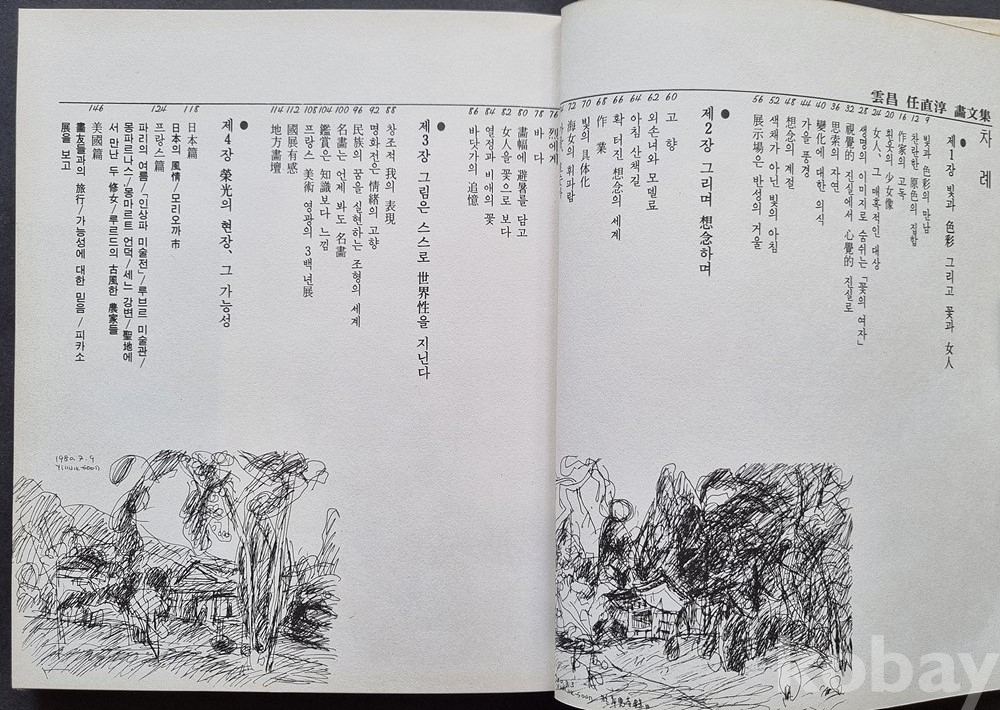 雲昌 任直淳 畵文集
차 례
제1장 빛과 色彩 그리고 꽃과 女人
9 빛과 色彩의 만남
12 찬란한 原色의 집합
16 作家의 고독
20 휜옷의 少女像
24 女人、그 매혹적인 대상
28 생명의 이미지로 숨쉬는「꽃의 여자」
32 視覺的 진실에서 心覺的 진실로
36 思索의 자연
40 變化에 대한 의식
44 가을 풍경
48 想念의 계절
52 색채가 아닌 빛의 아침
56 展示場은 반성의 거울
제2장 그리며 想念하며
60 고 향
62 외손녀와 모델료
64 아침 산책길
66 확 터진 想念의 세계
68 作 業
70 빛의 具体化
72 海女의 휘파람
76 烈에게
78 바 다
80 畵幅에 避暑를 담고
82 女人을 꽃으로 보다
84 열정과 비애의 꽃
86 바닷가의 追憶
제3장 그림은 스스로 世界性을 지닌다
88 창조적 我의 表現
92 명화전은 情緖의 고향
96 民族의 꿈을 실현하는 조형의 세계
100 名畵는 언제 봐도 名畵
104 鑑賞은 知識보다 느낌
108 프랑스 美術 영광의 3백년展
112 國展有感
114 地方畵壇
제4장 榮光의 현장、그 가능성
118 日本篇
日本의 風情/모리오까 市
124 프랑스篇
파리의 여름/인상파 미술전/루브르 미술관/
몽파르나스/몽마르트 언덕/세느 강변/聖地에
서 만난 두 修女/루르드의 古風한 農家들
146 美國篇
畵友들과의 旅行/가능성에 대한 믿음/피카소
展을 보고
1980.7.9
kobay